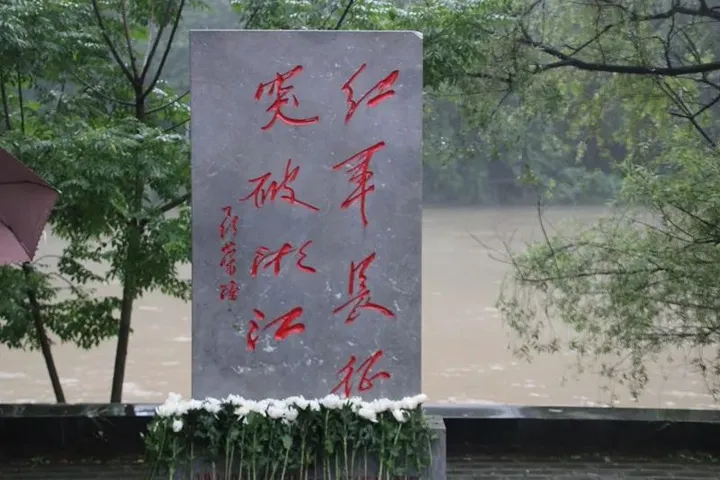 红军長征
突破湘江
聂荣臻